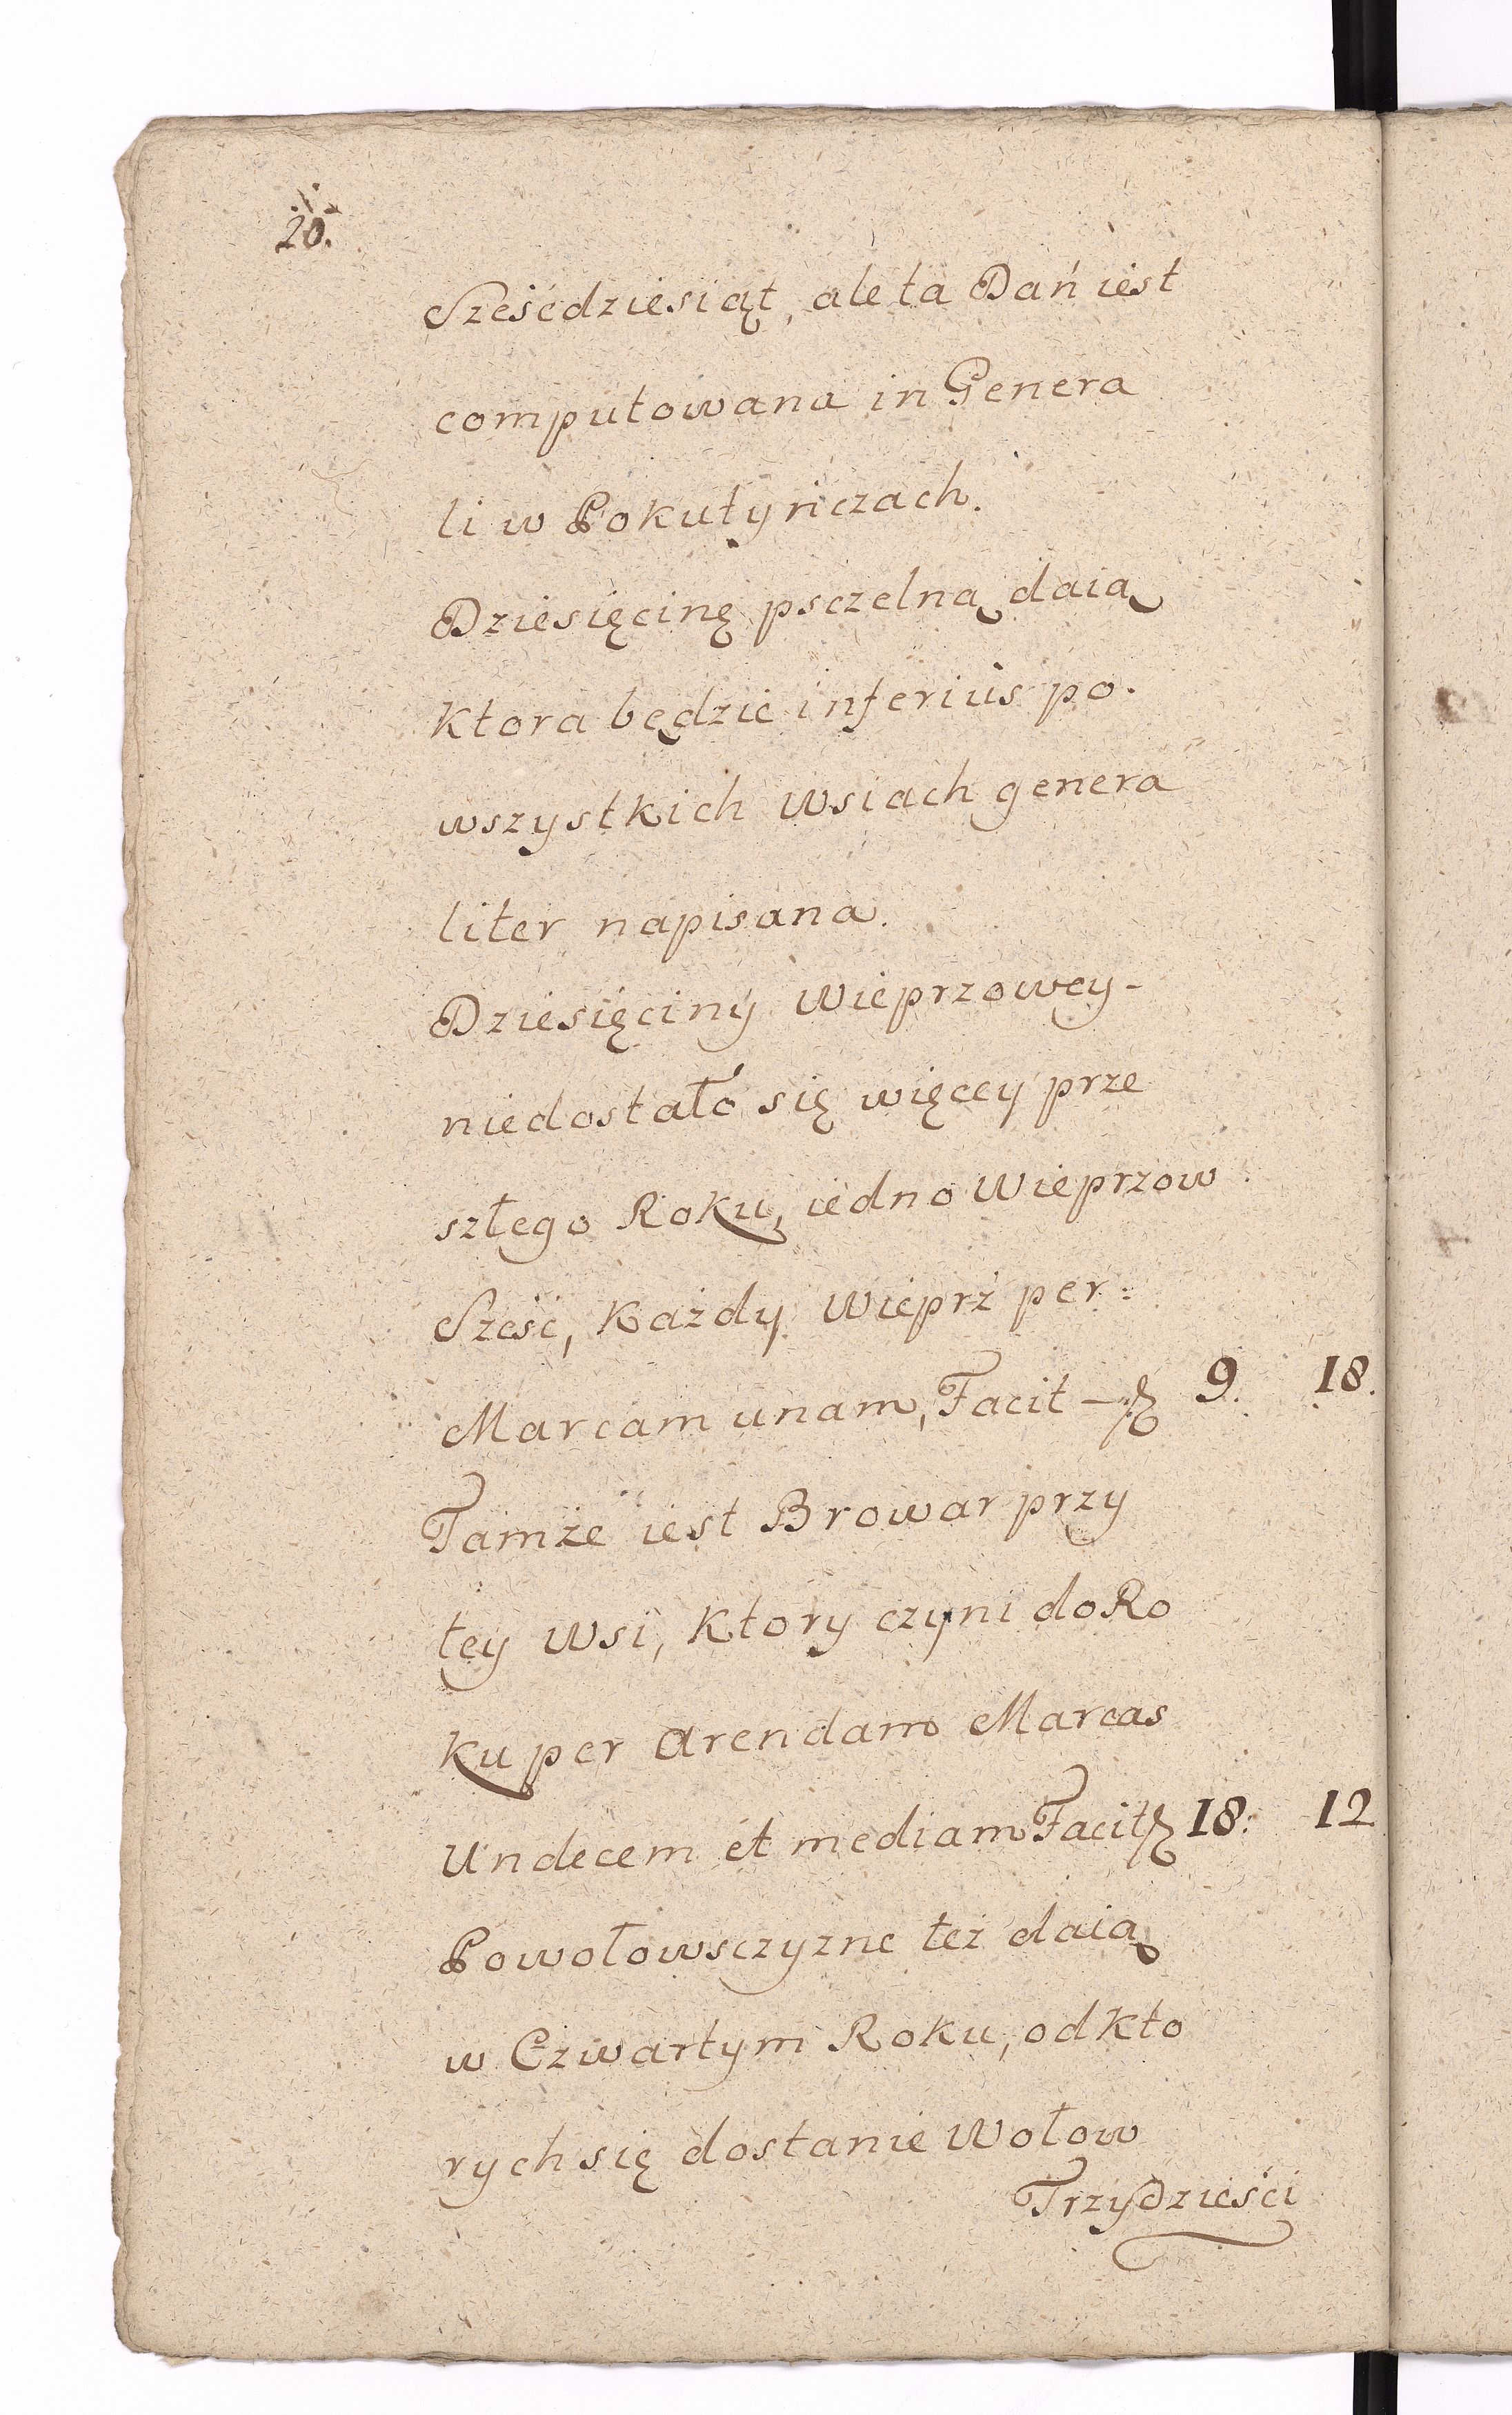 20.
Sześćdziesiąt, ale ta Dań iest
computowana in Genera
li w Pokutyńczach.
Dziesięcinę psczelną daią
Ktora będzie inferius po.
wszystkich Wsiach genera
liter napisana.
Dziesięciny Wieprzowey -
niedostało się więcey prze
szłego Roku, iedno Wieprzow
Sześć, Każdy Wieprz per =
Marcam unam, Facit — fl 9. 18.
Tamże iest Browar przy
tey Wsi, Ktory czyni do Ro
ku per Arendam Marcas
Undecem et mediam Facit fl 18. 12
Powołowsczyzne też daią
w Czwartym Roku, od Kto
rych się dostanie Wołow
Trzydzieści